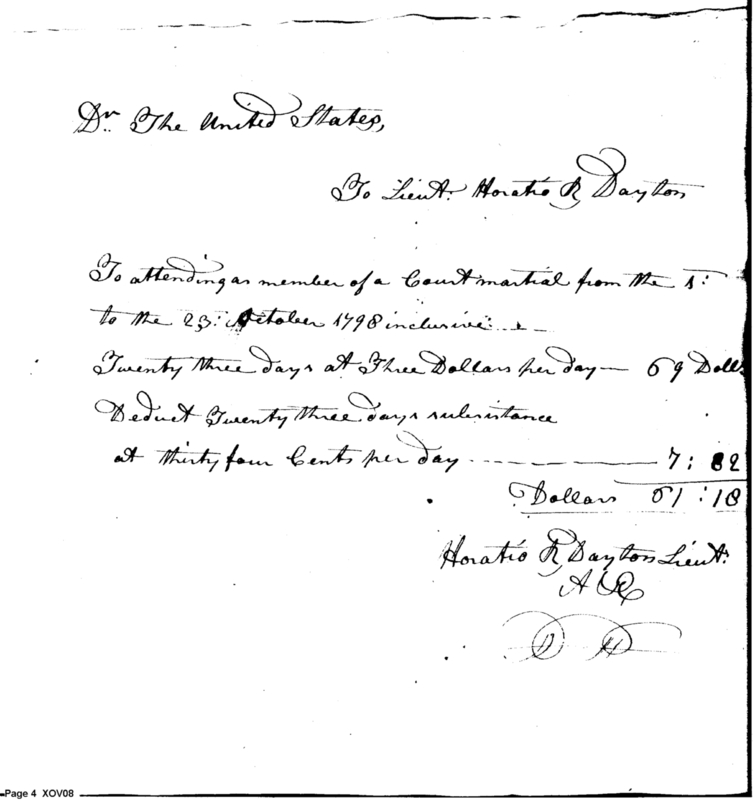 Dr. The United States,
To Lieut. Horatio R Dayton
To attending as member of a Court martial from the 1:
to the 23: October 1798 inclusive
Twenty three days at Three Dollars per day — 69 Dolls
Deduct Twenty three days subsistance
at thirty four Cents per day — 7:82
Dollars 61:18
Horatio R Dayton Lieut.
Page 4 XOV08